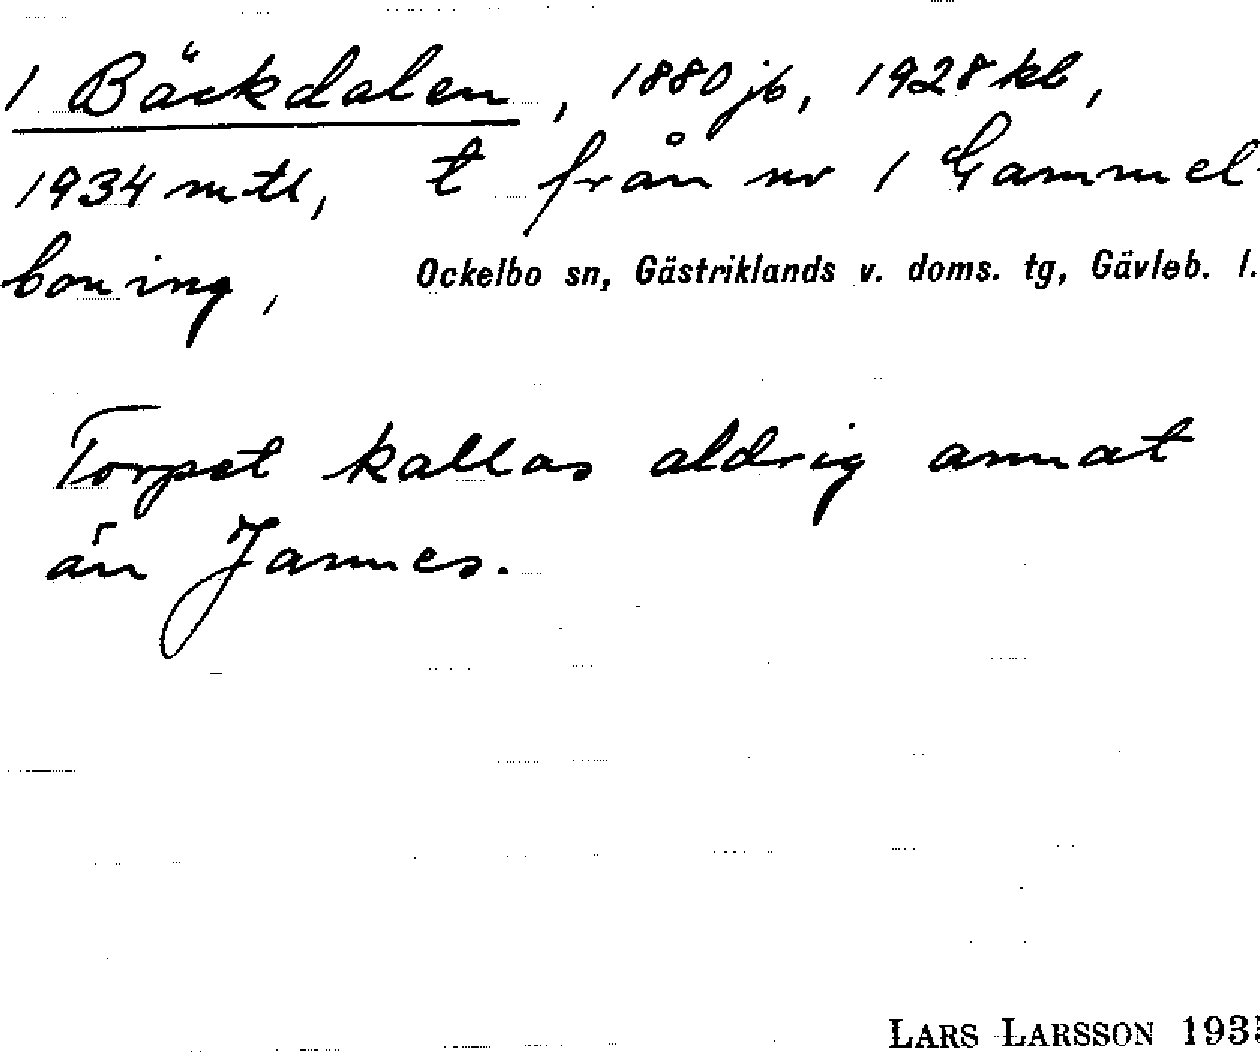 1 Bäckdalen, 1880 jb, 1928 kb,
1934 mtl, t från nr 1 Gammel-
boning, Ockelbo sn, Gästriklands v. doms. tg, Gävleb. l.
Torpet kallas aldrig annat
än Jannes.
LARS LARSSON 1935